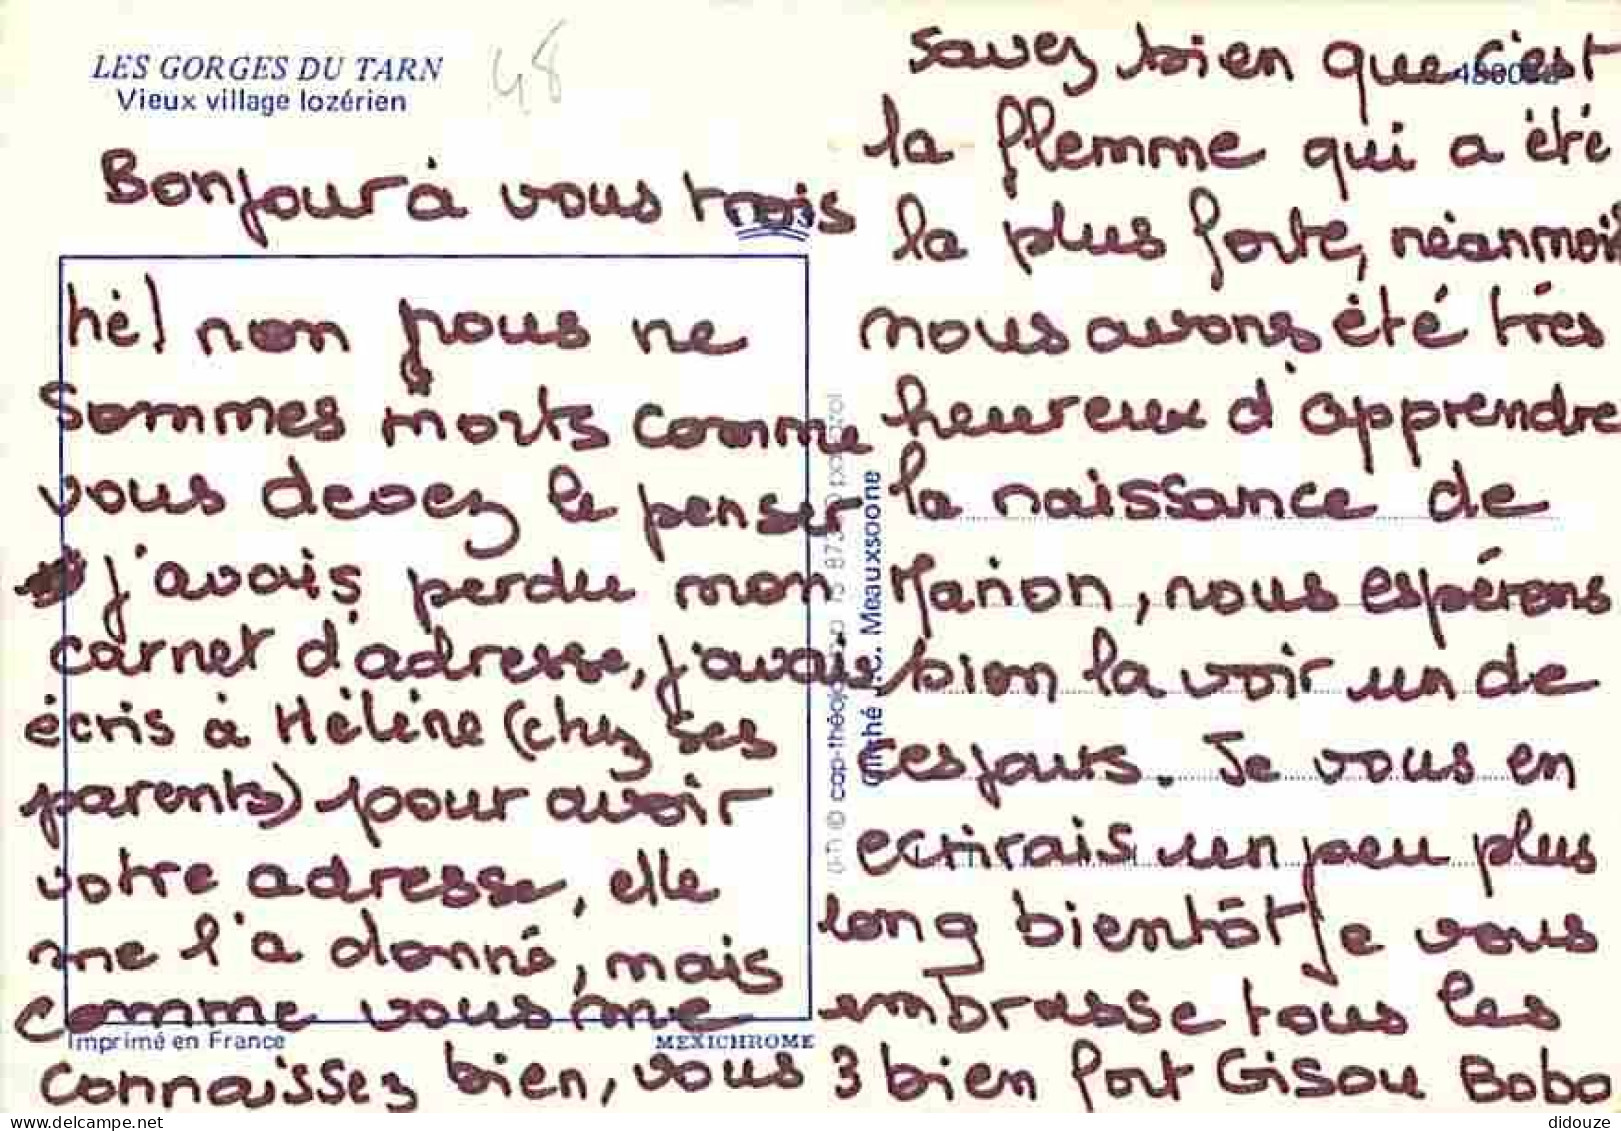 LES GORGES DU TARN
Vieux village lozérien
48
Bonjour à vous trois
hé! non nous ne
sommes morts comme
vous devez le penser
j'avais perdu mon
carnet d'adresse, j'avais
écris à Hélène (chez ses
parents) pour avoir
votre adresse, elle
me l'a donné, mais
comme vous me
connaissez bien, vous
Imprimé en France
MEXICHROME
Cliché J.C. Meauxsoone
savez bien que c'est
la flemme qui a été
la plus forte, néanmoins
nous avons été très
heureux d'apprendre
la naissance de
Manon, nous espérons
bien la voir un de
ces jours. Je vous en
ecrirais un peu plus
long bientôt je vous
embrasse tous les
3 bien fort Gisou Bobo
didouze